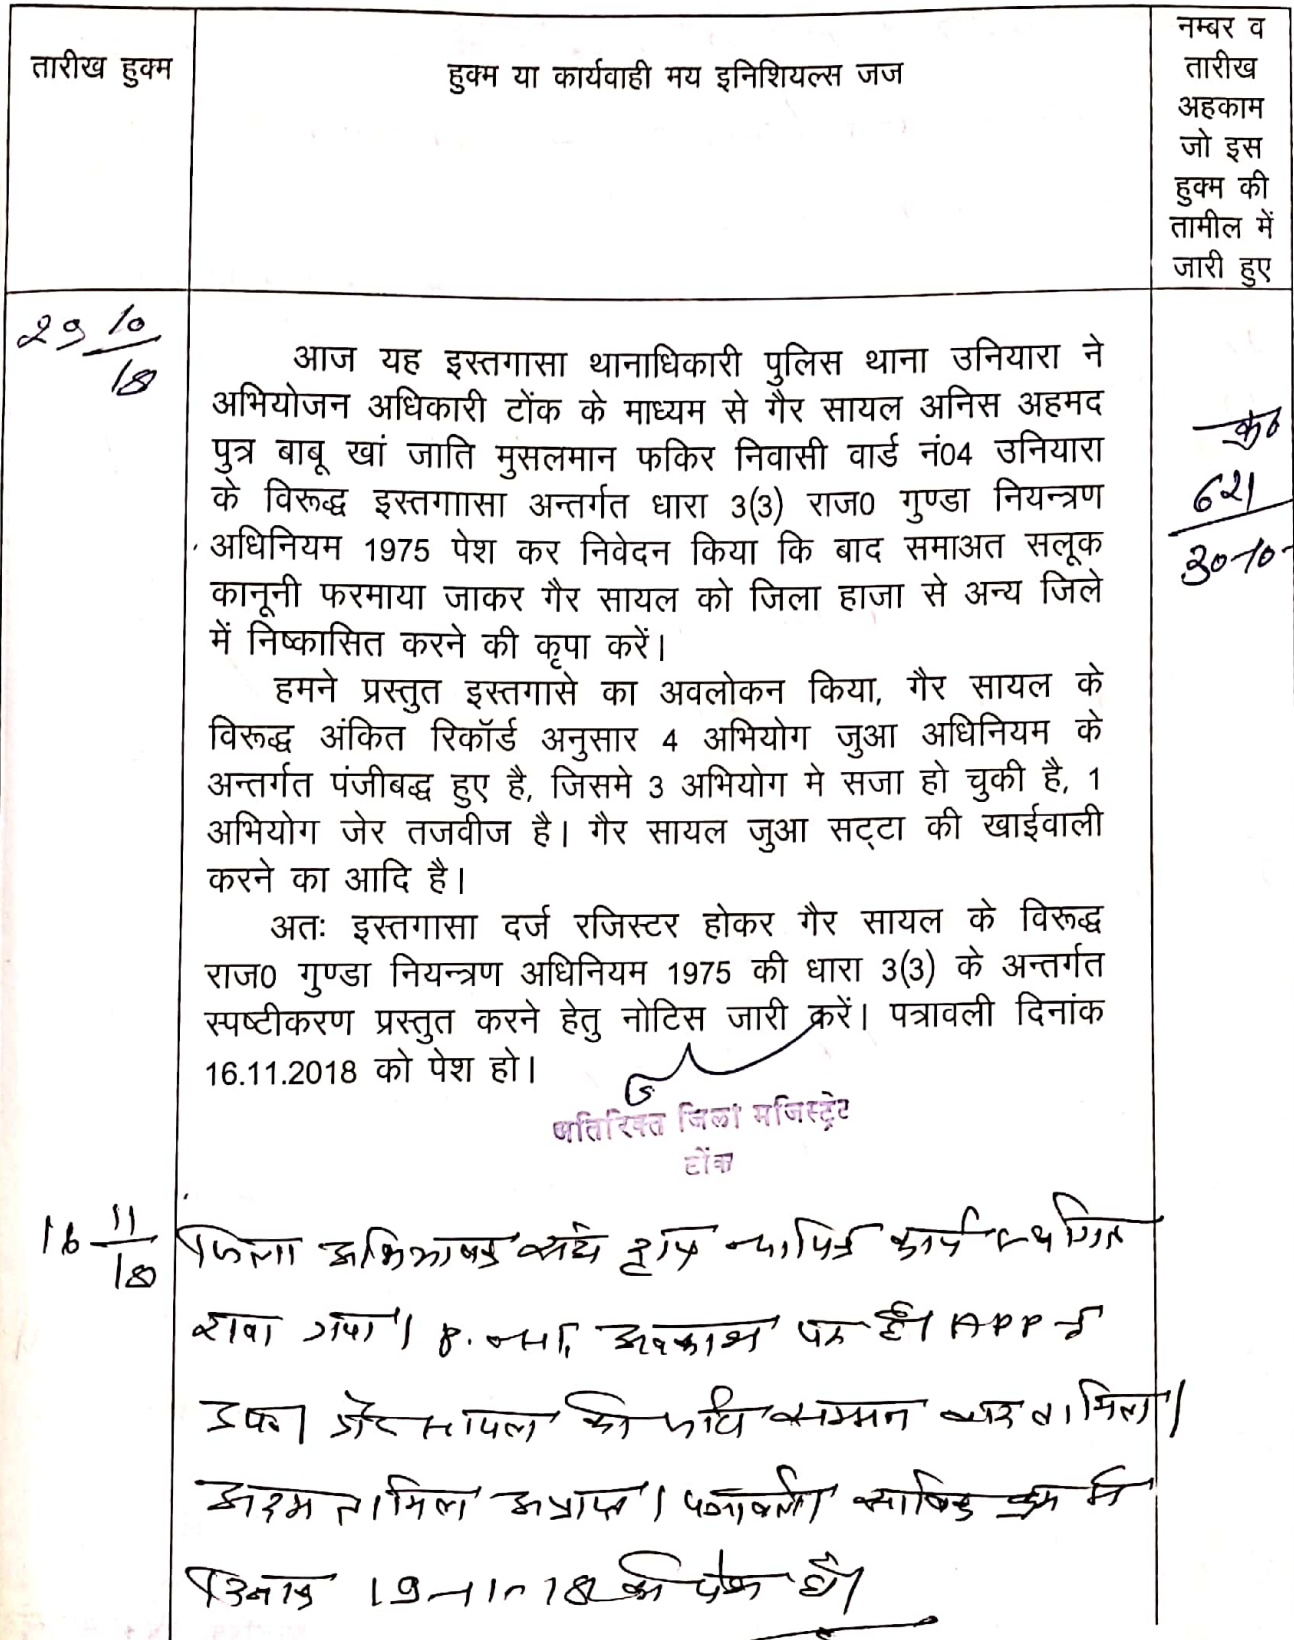 तारीख हुक्म
हुक्म या कार्यवाही मय इनिशियल्स जज
नम्बर व
तारीख
अहकाम
जो इस
हुक्म की
तामील में
जारी हुए
29 10/18
आज यह इस्तगासा थानाधिकारी पुलिस थाना उनियारा ने
अभियोजन अधिकारी टोंक के माध्यम से गैर सायल अनिस अहमद
पुत्र बाबू खां जाति मुसलमान फकिर निवासी वार्ड नं04 उनियारा
के विरूद्ध इस्तगाासा अन्तर्गत धारा 3(3) राज0 गुण्डा नियन्त्रण
अधिनियम 1975 पेश कर निवेदन किया कि बाद समाअत सलूक
कानूनी फरमाया जाकर गैर सायल को जिला हाजा से अन्य जिले
में निष्कासित करने की कृपा करें।
हमने प्रस्तुत इस्तगासे का अवलोकन किया, गैर सायल के
विरूद्ध अंकित रिकॉर्ड अनुसार 4 अभियोग जुआ अधिनियम के
अन्तर्गत पंजीबद्ध हुए है, जिसमे 3 अभियोग मे सजा हो चुकी है, 1
अभियोग जेर तजवीज है। गैर सायल जुआ सट्टा की खाईवाली
करने का आदि है।
अतः इस्तगासा दर्ज रजिस्टर होकर गैर सायल के विरूद्ध
राज0 गुण्डा नियन्त्रण अधिनियम 1975 की धारा 3(3) के अन्तर्गत
स्पष्टीकरण प्रस्तुत करने हेतु नोटिस जारी करें। पत्रावली दिनांक
16.11.2018 को पेश हो।
क्र0
621
30-10-
अतिरिक्त जिला मजिस्ट्रेट
टोंक
16 11/18
जिला अभिभाषक संघ द्वारा न्यायिक कार्य स्थगित
रखा गया। अवकाश पर है। APP
उप0। गैर सायल को जरिये सम्मन तामिल।
अदम तामिल अप्राप्त। पत्रावली साबिक क्रम में
दिनांक 19-11-18 को पेश हो।